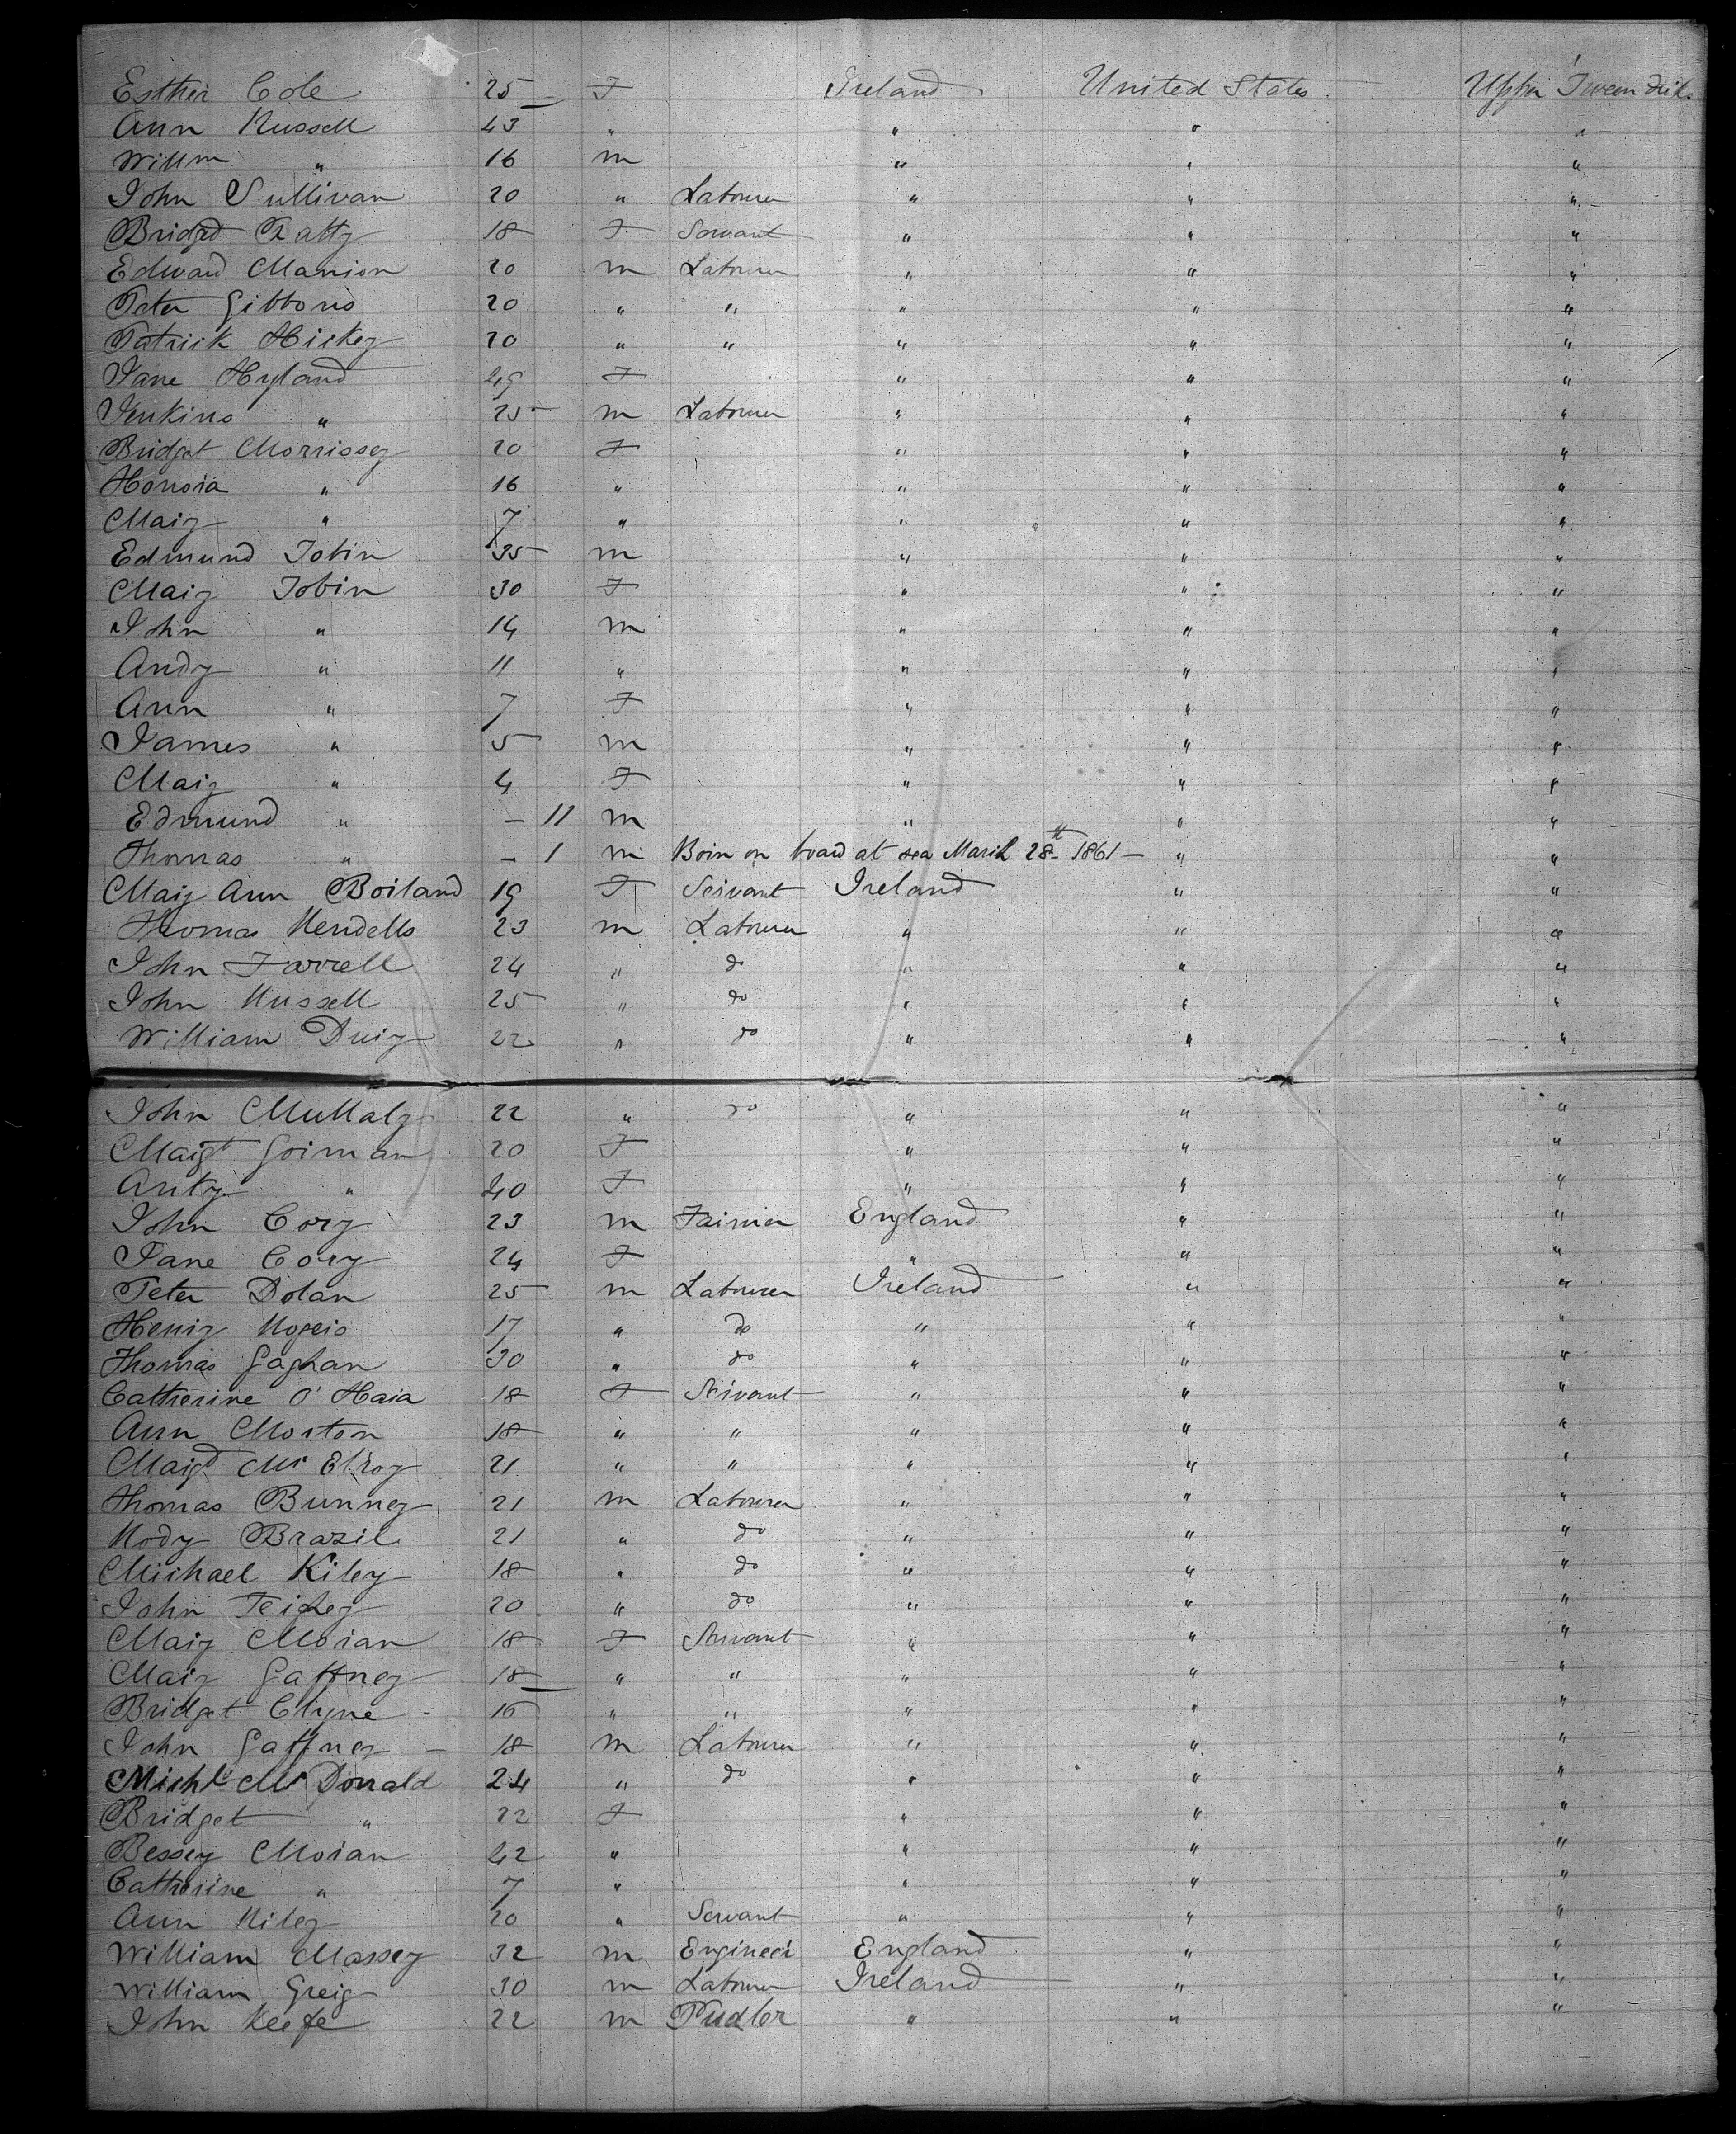 Esther Cole 25 F Ireland United States Upper Tween Deck
Ann Russell 43 " " " "
Willm " 16 m " " "
John Sullivan 20 " Labourer " " "
Bridget Ratty 18 F Servant " " "
Edward Manion 20 m Labourer " " "
Peter Gibbons 20 " " " " "
Patrick Hickey 20 " " " " "
Jane Hyland 49 F " " "
Jenkins " 25 m Labourer " " "
Bridget Morrissey 20 F " " "
Honora " 16 " " " "
Mary " 7 " " " "
Edmund Tobin 35 m " " "
Mary Tobin 30 F " " "
John " 14 m " " "
Andy " 11 " " " "
Ann " 7 F " " "
James " 5 m " " "
Mary " 4 F " " "
Edmund " - 11 m " " "
Thomas " - 1 m Born on board at sea March 28th 1861 - " "
Mary Ann Borland 19 F Servant Ireland " "
Thomas 23 m Labourer " " "
John Farrell 24 " do " " "
John Russell 25 " do " " "
William Dury 22 " do " " "
John Mullaly 22 " do " " "
Margt Gorman 20 F " " "
" 40 F " " "
John Cory 23 m Farmer England " "
Jane Cory 24 F " " "
Peter Dolan 25 m Labourer Ireland " "
Henry Rogers 17 " do " " "
Thomas Gaghan 30 " do " " "
Catherine O'Hara 18 F Servant " " "
Ann Morton 18 " " " " "
Margt McElroy 21 " " " " "
Thomas Bunney 21 m Labourer " " "
Rody Brazil 21 " do " " "
Michael Kiley 18 " do " " "
John 20 " do " " "
Mary Moran 18 F Servant " " "
Mary Gaffney 18 " " " " "
Bridget Clyne 16 " " " " "
John Gaffney - 18 m Labourer " " "
Michl McDonald 24 " do " " "
Bridget " 22 F " " "
Bessey Moran 42 " " " "
Catherine " 7 " " " "
Ann Riley 20 " Servant " " "
William Massey 32 m Engineer England " "
William Greig 30 m Labourer Ireland " "
John Keefe 22 m Pudler " " "